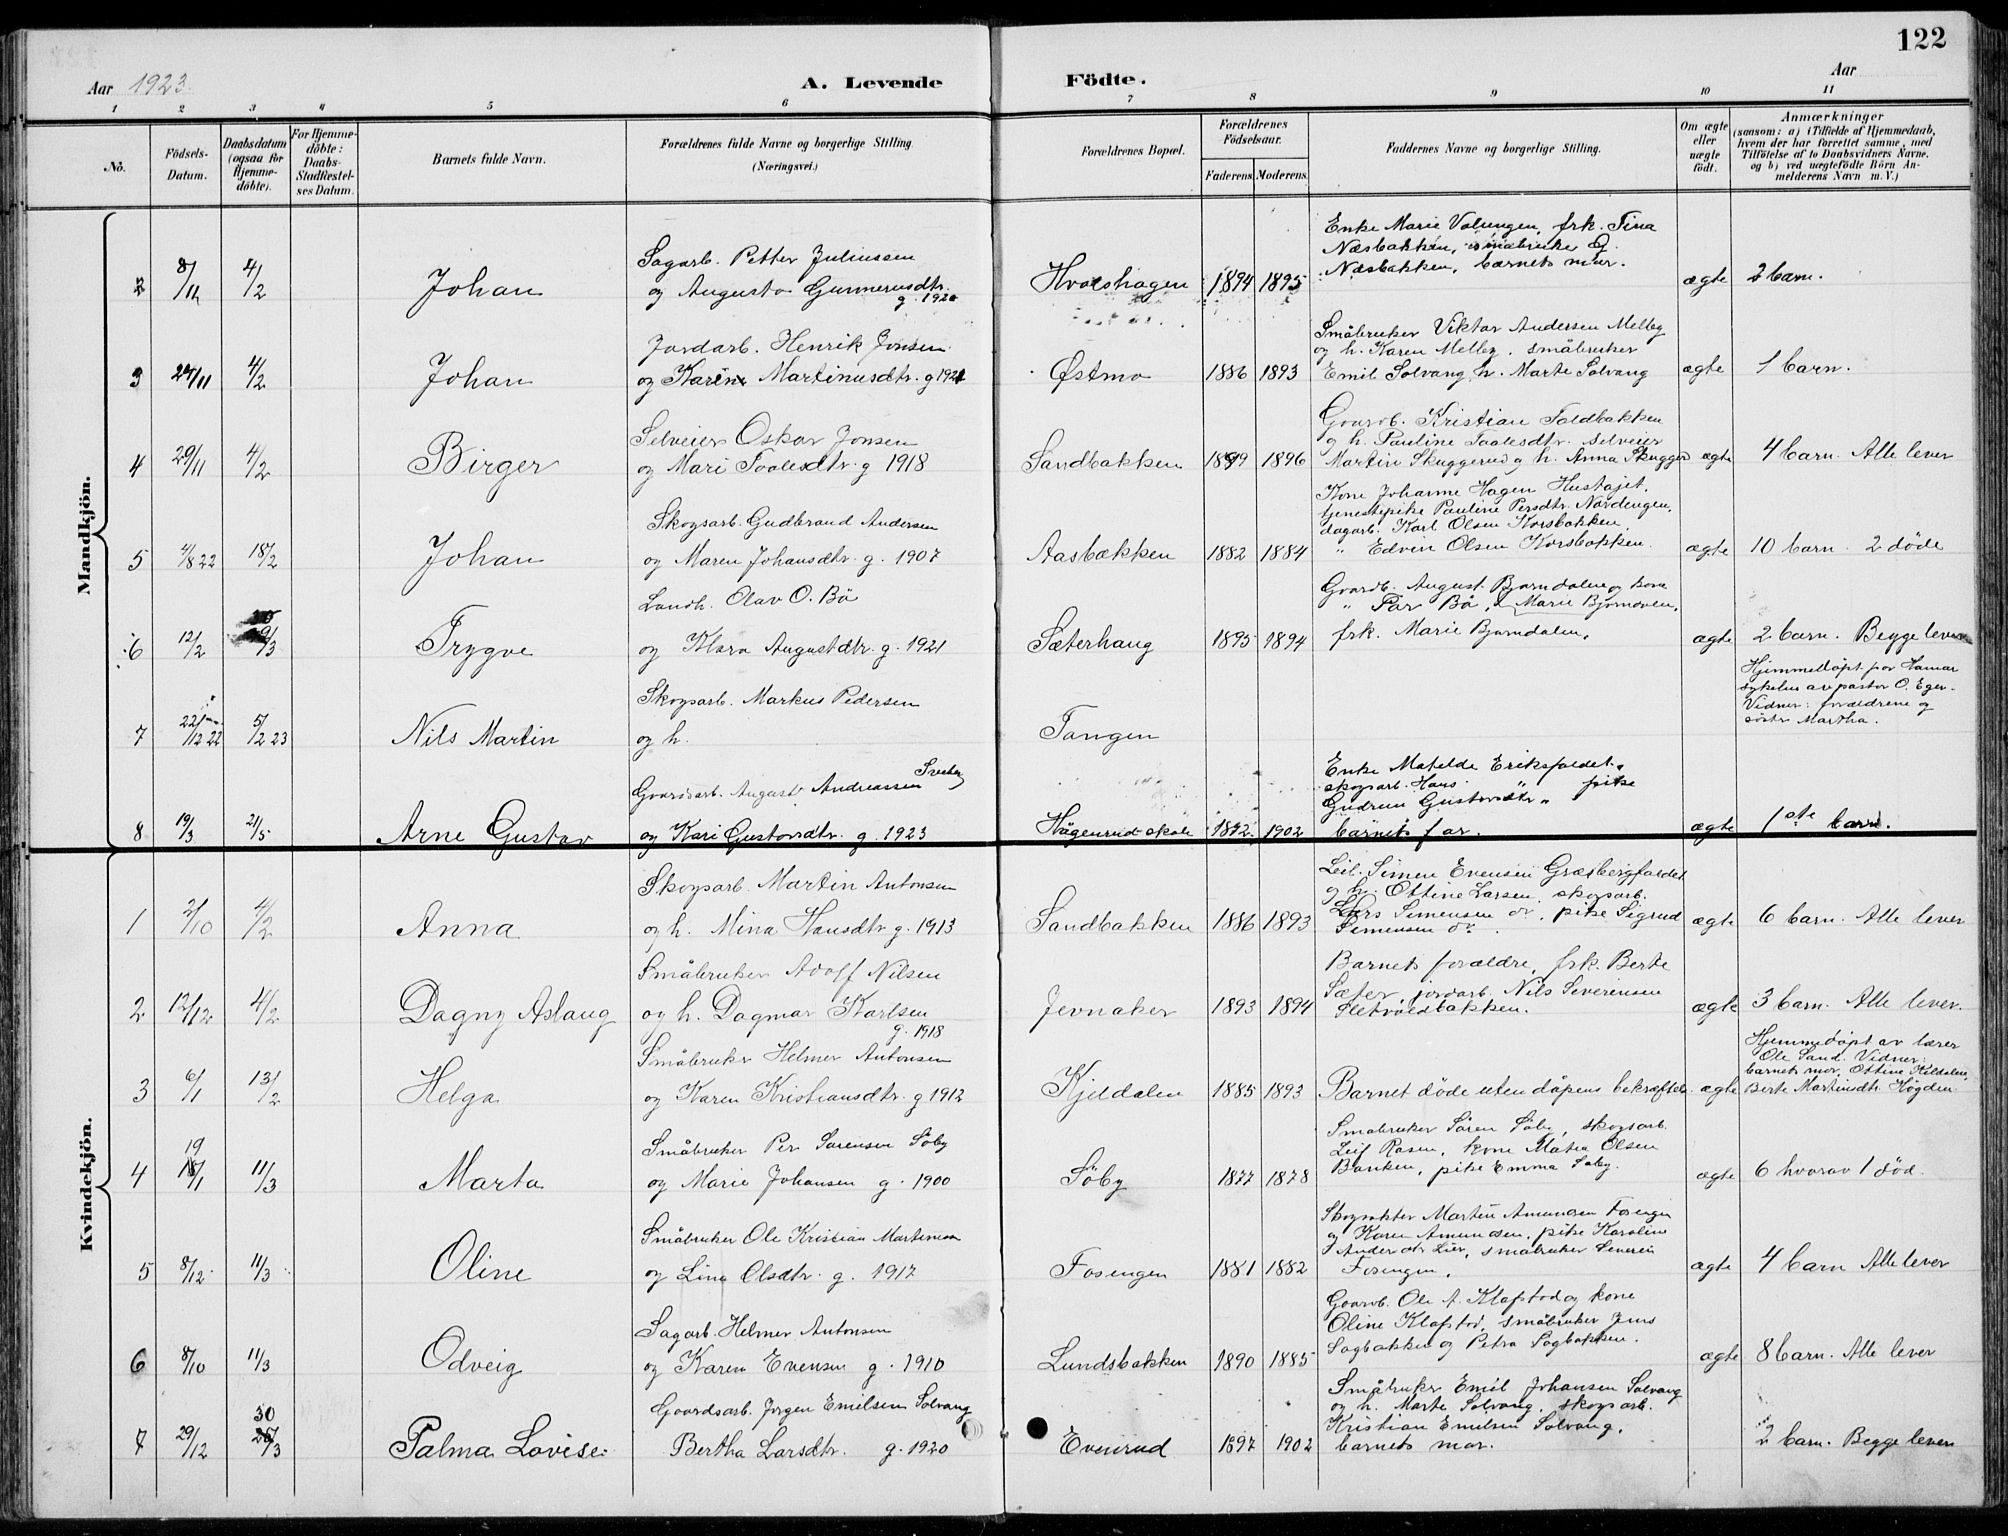 122
Aar 1923. A. Levende Födte. Aar
1 2 3 4 5 6 7 8 9 10 11
No.
Födsels-Datum.
Daabsdatum (ogsaa for Hjemme-döbte).
For Hjemme-döbte: Daabs-Stadfæstel-ses Datum.
Barnets fulde Navn.
Forældrenes fulde Navne og borgerlige Stilling. (Næringsvei.)
Forældrenes Bopæl.
Forældrenes Födselsaar.
Faderens. Moderens.
Faddernes Navne og borgerlige Stilling.
Om ægte eller uægte födt.
Anmærkninger
(saasom: a) i Tilfælde af Hjemmedaab,
hvem der har forrettet samme, med
Tilföielse af to Daabsvidners Navne.
og b) ved uægtefödte Börn An-
melderens Navn m. V.)
Mandkjön.
Enke Marie Volungen, frk. Tina
Sagarb. Petter Juliussen Næsbakken, småbruker
2 8/12 4/2 Johan og Augusta Gunnerusdtr. g. 1920 Hvoeshagen 1894 1895 Næsbakken, barnets mor. ægte 2 barn.
Jordarb. Henrik Jonsen Småbruker Viktor Andersen Melby
og h. Karen Melby, småbruker
3 24/11 4/2 Johan og Karine Martinusdtr. g 1921 Östmo 1886 1893 Emil Solvang h. Marte Solvang ægte 1 barn.
Selveier Oskar Jonsen Gaarb. Kristian Taldbakken
og h. Pauline Taalesdtr. selveier
4 29/11 4/2 Birger og Mari Taalesdtr. g 1918 Sandbakken 1899 1896 Martin Skuggerud og h. Anna Skugger ægte 4 barn. Alle lever
Kone Johanne Hagen Hustajet,
tjenestepike Pauline Persdtr. Nordengen,
Skogsarb. Gudbrand Andersen dagarb. Karl Olsen Korsbakken,
5 4/8 22 18/2 Johan og Maren Johansdtr. g. 1907 Aasbakken 1882 1884 " Edvin Olsen Korsbakken. ægte 10 barn. 2 döde
Landh. Olav O. Bö Gaardb. August Bjorndalen og kone
" Par Bö, Marie Bjornoven,
6 12/2 /3 Trygve og Klara Augustdtr. g. 1921 Sæterhaug 1895 1894 frk. Marie Bjorndalen. ægte 2 barn. Begge lever
Skogsarb. Markus Pedersen Hjemmedöpt paa Hamar
sykehus av pastor O. Eger.
Vidner: forældrene og
7 22/12 22 5/2 23 Nils Martin og h. Tangen söster Martha.
Gaardsarb. August Andreassen Enke Matelde Eriksfaldet,
skogsarb. Hans " pike
Gudrun Gustavsdtr "
8 19/3 21/5 Arne Gustav og Kari Gustavsdtr. g. 1923 Hågenrud skole 1892 1902 barnets far. ægte 1ste barn.
Kvindekjön.
Skogsarb. Martin Antonsen Leil. Simen Evensen Græsbergfaldet
og h. Ottine Larsen, skogsarb.
1 2/10 4/2 Anna og h. Mina Hansdtr g. 1913 Sandbakken 1886 1893 Lars Simensen do, pike Sigrud Simensen do. ægte 6 barn. Alle lever
Småbruker Adolf Nilsen Barnets forældre, frk. Berte
Sæter, jordarb. Nils Severinsen
2 12/12 4/2 Dagny Aslaug og h. Dagmar Karlsen g. 1918 Jevnaker 1893 1894 Sletvoldbakken. ægte 3 barn. Alle lever.
Småbruker Helmer Antonsen Hjemmedöpt av lærer
Ole Sand. Vidner:
barnets mor, Ottine Kildalen,
3 6/1 13/2 Helga og Karen Kristiansdtr. g 1912 Kjeldalen 1885 1893 Barnet döde uten dåpens bekræftels. ægte Berte Martinsdtr. Högden
Småbruker Per Sörensen Söby Småbruker Sören Söby, skogsarb.
Leif Rosen, kone Matea Olsen
4 19/1 11/3 Marta og Marie Johansen g. 1900 Söby 1877 1878 Banken, pike Emma Söby. ægte 6 hvorav 1 död.
Småbruker Ole Kristian Martinsen Skogvokter Martin Amundsen Fosengen
og Karen Amundsen, pike Karoline
Andersdtr Lier, småbruker
5 8/12 11/3 Oline og Lina Olsdtr. g. 1917 Fosengen 1881 1882 Fosengen. ægte 4 barn Alle lever
Sagarb. Helmer Antonsen Gaardb. Ole A. Klafstad og kone
Oline Klafstad, småbruker Jens
6 8/10 11/3 Odveig og Karen Evensen g. 1910 Lundsbakken 1890 1885 Sagbakken og Petra Sagbakken. ægte 8 barn. Alle lever
Gaardsarb. Jörgen Emilsen Solvang Småbruker Emil Johansen Solvang
og h. Marte Solvang, skogsarb.
Kristian Emilsen Solvang,
7 29/12 30/3 Palma Lovise Bertha Larsdtr. g. 1920 Evenrud 1897 1902 barnets mor. 2 barn. Begge lever